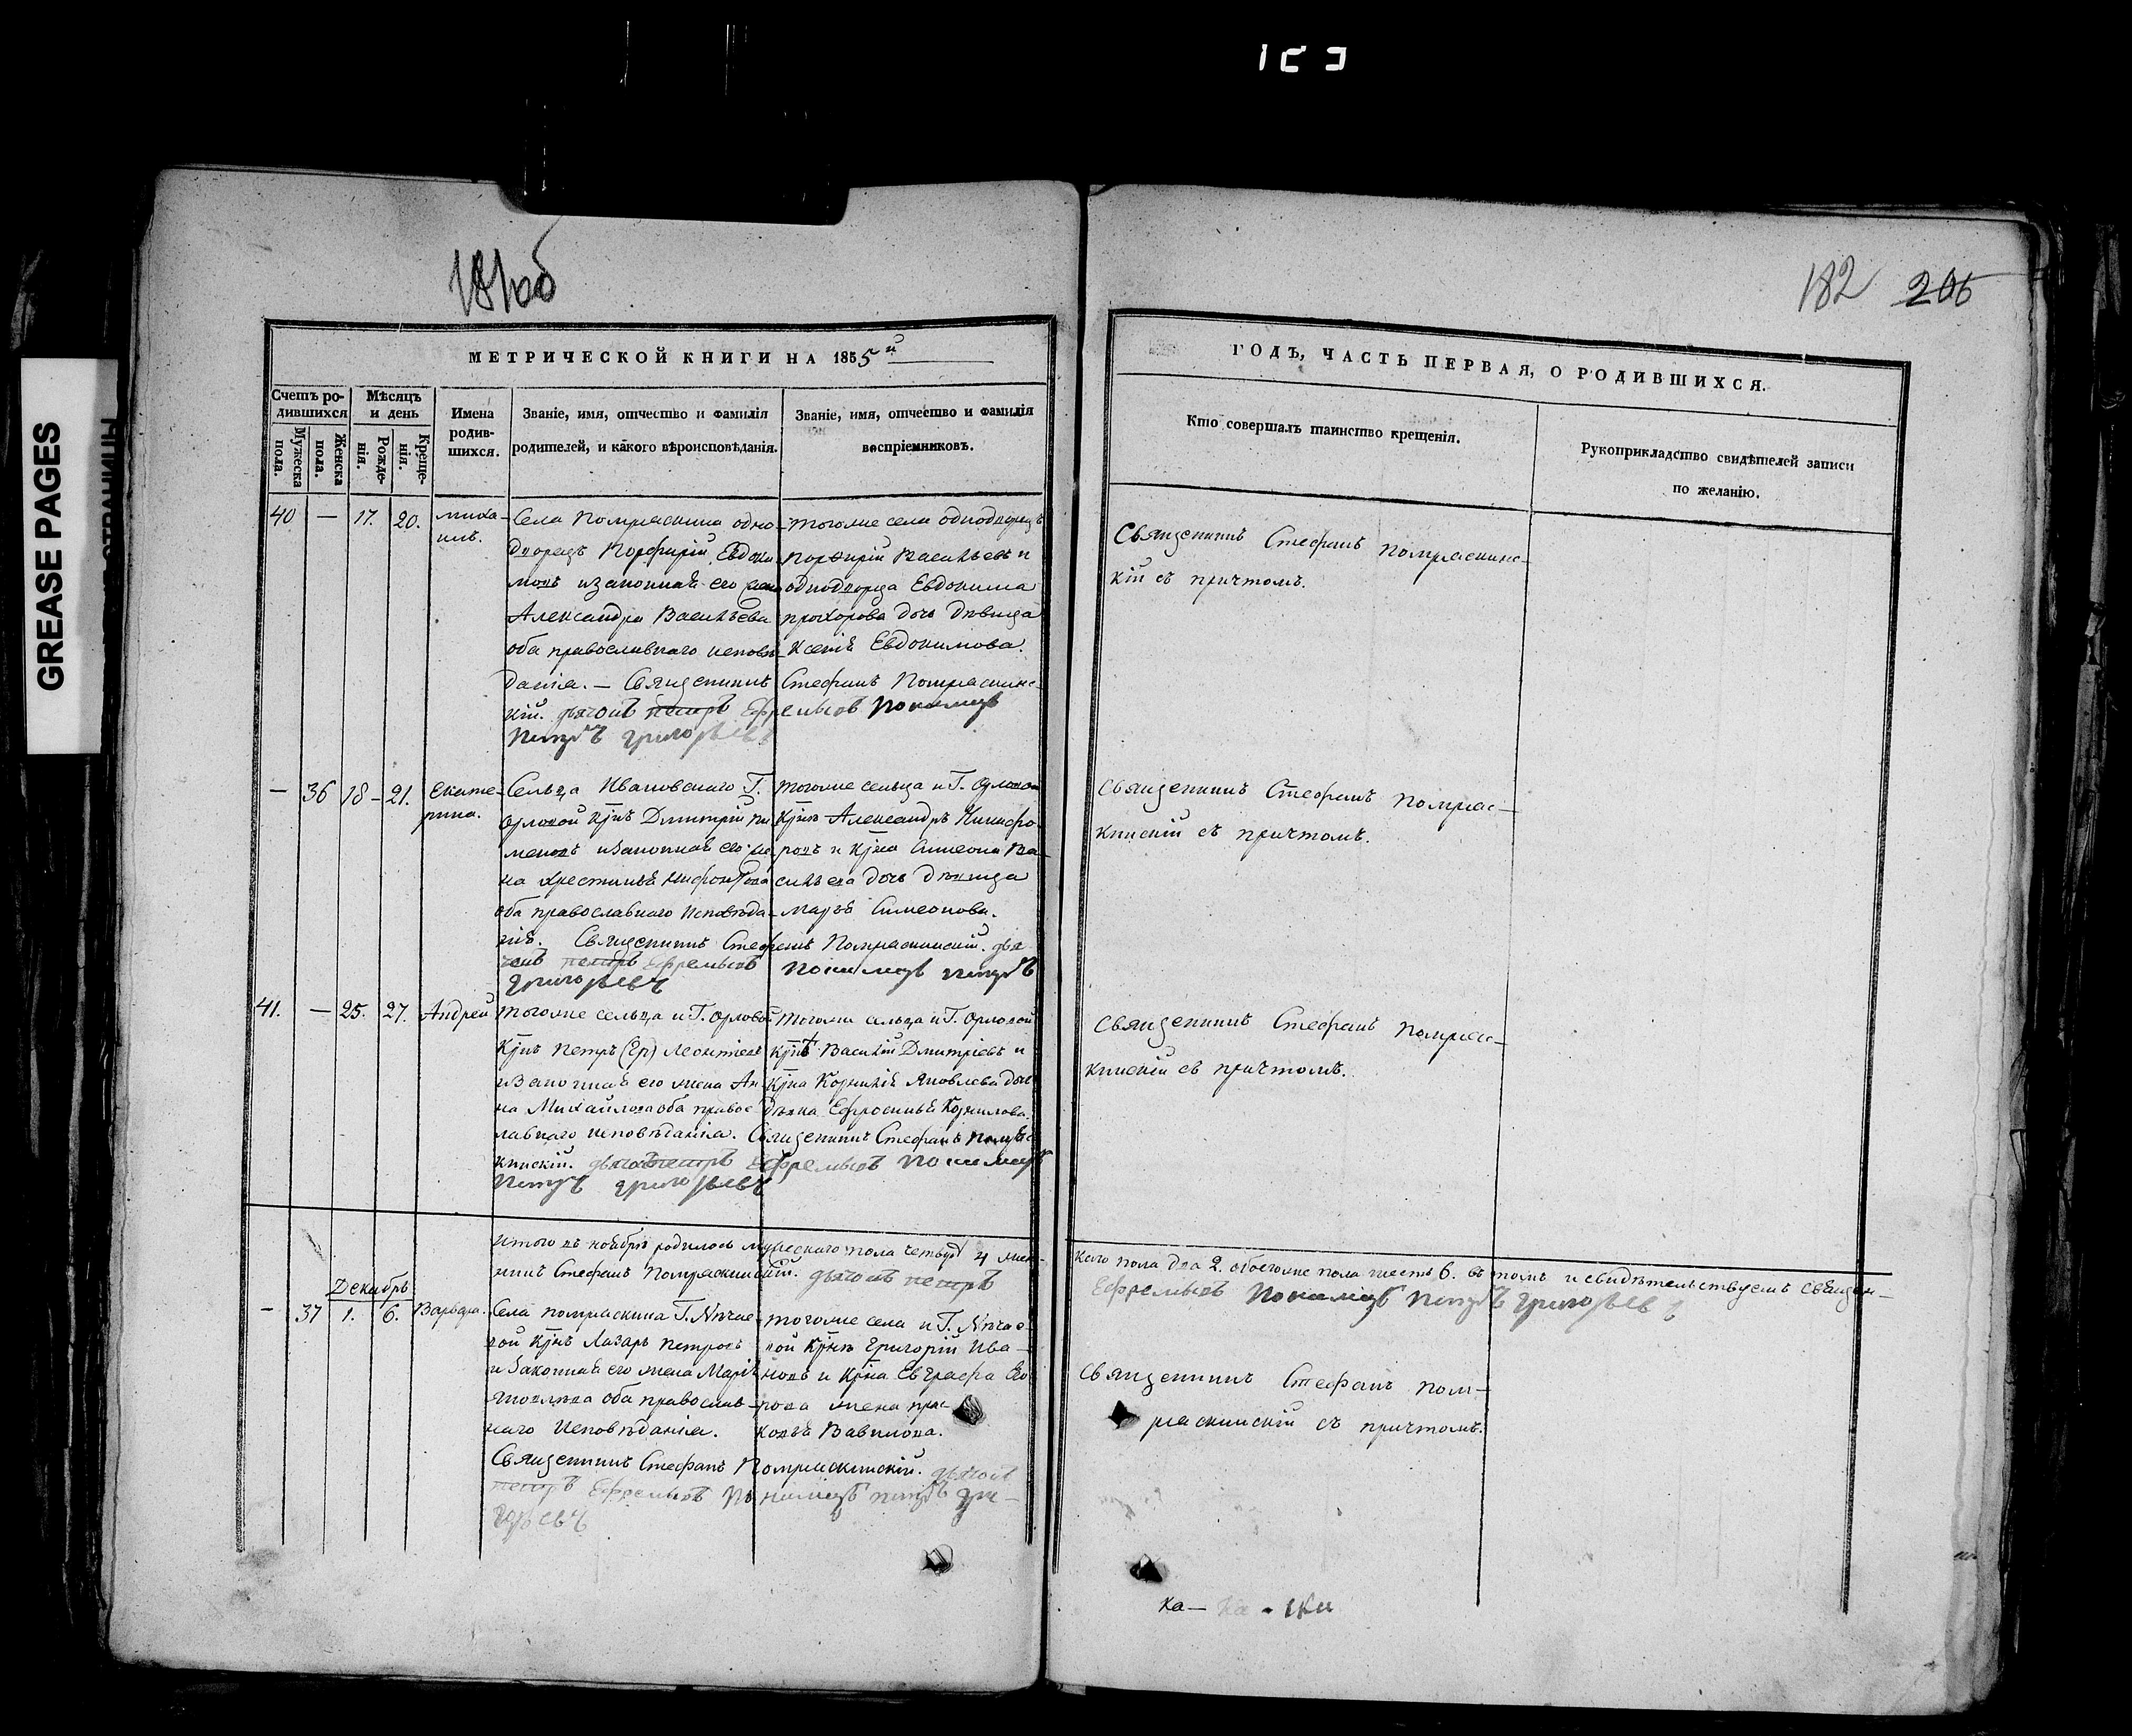 GREASE PAGES
181 об
182 206
МЕТРИЧЕСКОЙ КНИГИ НА 1855й
ГОДЪ, ЧАСТЬ ПЕРВАЯ, О РОДИВШИХСЯ.
Счетъ родившихся
Мужеска пола.
Женска пола.
Мѣсяцъ и день
Рожденія.
Крещенія.
Имена родившихся.
Званіе, имя, отчество и фамилія
родителей, и какого вѣроисповѣданія.
Званіе, имя, отчество и фамилія
воспріемниковъ.
Кто совершалъ таинство крещенія.
Рукоприкладство свидѣтелей записи
по желанію.
40 — 17. 20. Миха-
илъ.
Села Потряскина одно-
дворецъ Порфирій Евдоки
мовъ и законная его жена
Александра Васильева
оба православнаго исповѣ-
данія. — Священникъ Стефанъ Потряскинс-
кій. дьячокъ петръ Ефремовъ Пономарь
Петръ Григорьевъ
тогоже села однодворецъ
Порфирій Васильевъ и
однодворца Евдокима
Прохорова дочь Дѣвица
Ксенія Евдокимова.
Священникъ Стефанъ Потряскинс-
кій съ причтомъ.
— 36 18 - 21. Екате-
рина.
Сельца Ивановскаго Г.
Орловой Кр̃нъ Димитрій Пи
меновъ и законная его же
на Христинья
оба православнаго исповѣда-
нія. Священникъ Стефанъ Потряскинскій. дья
чокъ петръ Ефремовъ Пономарь Петръ
Григорьевъ
тогоже сельца и Г. Орловой
Кр̃нъ Александръ Никифо-
ровъ и Кр̃на Симеона Ва-
сильева дочь Дѣвица
Марья Симеонова.
Священникъ Стефанъ Потряс-
кинскій съ причтомъ.
41. — 25. 27. Андрей
Тогоже сельца и Г. Орловой
Кр̃нъ Петръ Леонтіевъ
и законная его жена Ан-
на Михайлова оба правос-
лавнаго исповѣданія. Священникъ Стефанъ Потряс-
кинскій. дьячокъ петръ Ефремовъ Пономарь
Петръ Григорьевъ
Тогоже сельца и Г. Орловой
Кр̃нъ Василій Дмитріевъ и
Кр̃на Корнилія Яковлева дочь
Дѣвка Ефросинья Корнилова.
Священникъ Стефанъ Потряс-
кинскій съ причтомъ.
Итого въ ноябрѣ родилось мужескаго пола четыре 4 женс-
каго пола два 2. обоегоже пола шесть 6. въ томъ и свидѣтельствуемъ Священ-
никъ Стефанъ Потряскинскій. дьячокъ петръ
Ефремовъ Пономарь Петръ Григорьевъ
Декабрь
— 37 1. 6. Варвара.
Села Потряскина Г.
Кр̃нъ Лазарь Петровъ
и законная его жена Марія
Яковлева оба православ-
наго Исповѣданія.
Священникъ Стефанъ Потряскинскій. дьячокъ
петръ Ефремовъ Пономарь Петръ Гри-
горьевъ
тогоже села и Г.
Кр̃нъ Григорій Ива-
новъ и Кр̃на Евграфа Его-
рова жена Прас-
ковья Вавилова.
Священникъ Стефанъ Пот-
ряскинскій съ причтомъ.